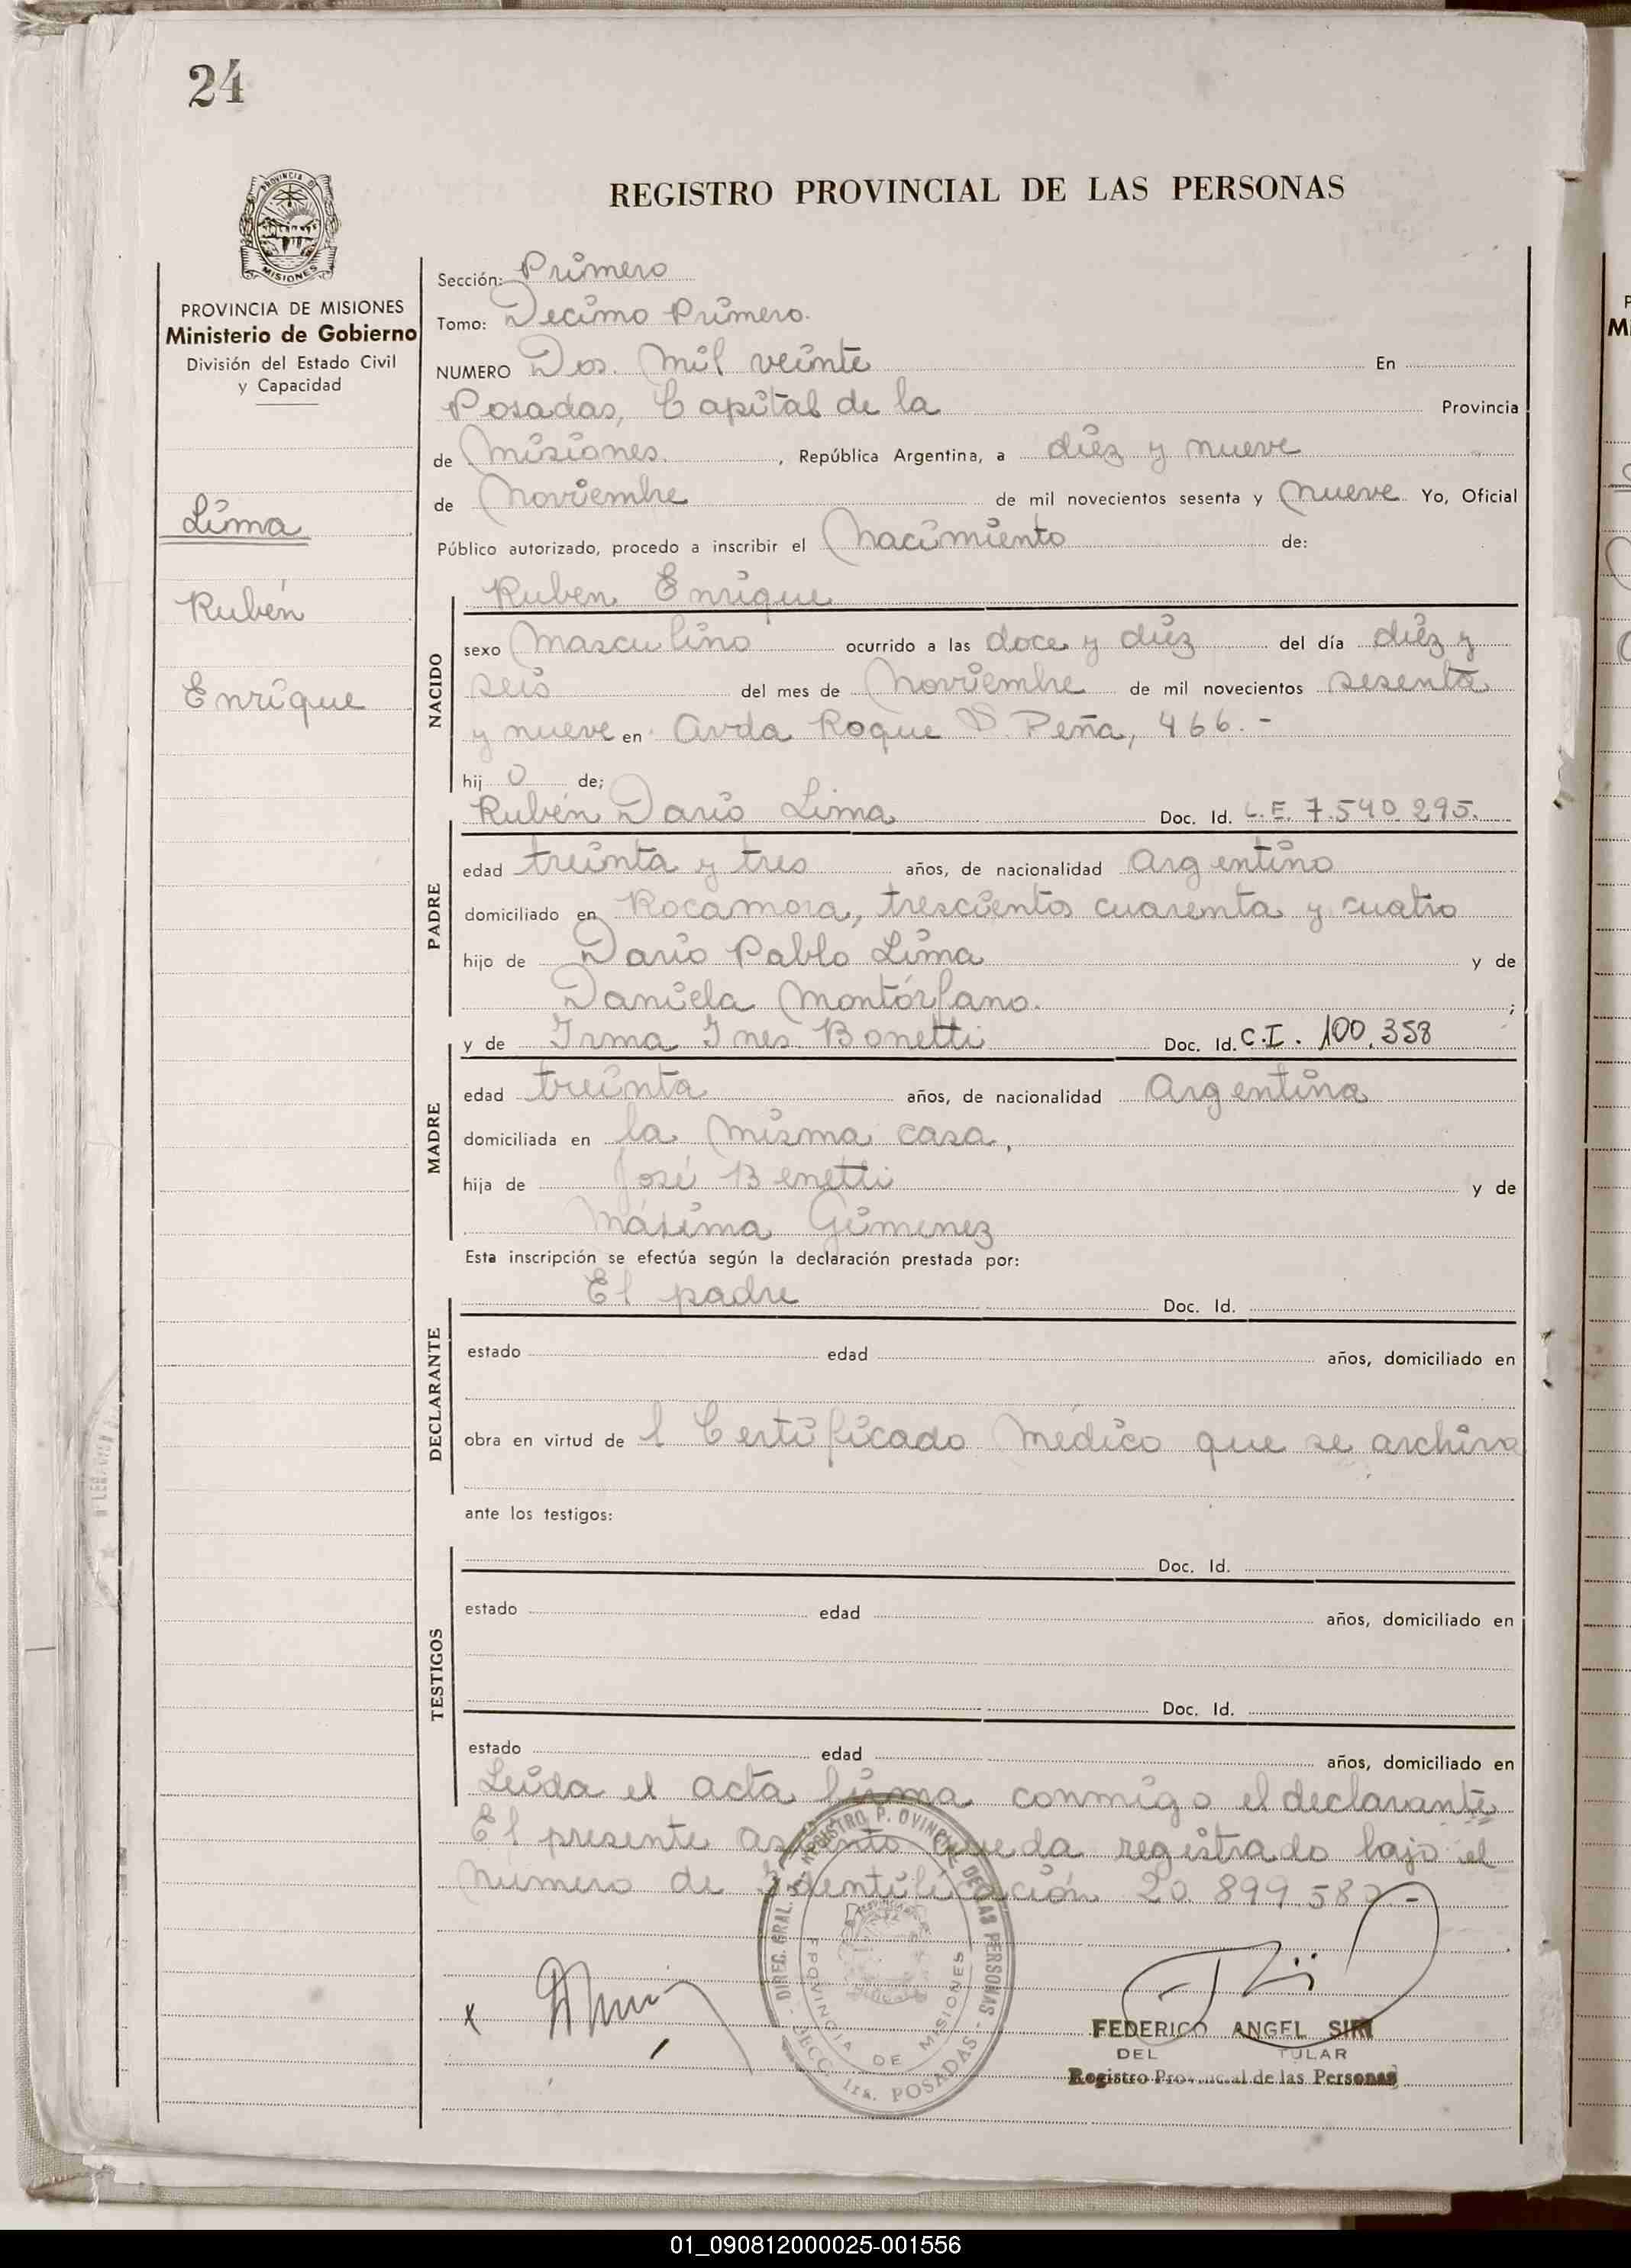 24
REGISTRO PROVINCIAL DE LAS PERSONAS
PROVINCIA DE MISIONES
Ministerio de Gobierno
División del Estado Civil
y Capacidad
Lima
Rubén
Enrique
Sección: Primero
Tomo: Decimo Primero.
NUMERO Dos. Mil veinte En
Posadas, Capital de la Provincia
de Misiones. , República Argentina, a diez y nueve
de Noviembre de mil novecientos sesenta y Nueve Yo, Oficial
Público autorizado, procedo a inscribir el Nacimiento de:
Ruben Enrique
NACIDO
sexo Masculino ocurrido a las doce y diez del día diez y
seis del mes de Noviembre de mil novecientos sesenta
y nueve en Avda Roque S. Peña, 466.-
hij o de;
Rubén Dario Lima Doc. Id. L.E. 7.540.295.
PADRE
edad treinta y tres años, de nacionalidad Argentino
domiciliado en Rocamora, trescientos cuarenta y cuatro
hijo de Dario Pablo Lima y de
Daniela Montórfano. ;
y de Irma Ines Bonetti Doc. Id. C.I. 100.358
MADRE
edad treinta años, de nacionalidad Argentina
domiciliada en la misma casa,
hija de José Benetti y de
Máxima Gimenez
Esta inscripción se efectúa según la declaración prestada por:
El padre Doc. Id.
DECLARANTE
estado edad años, domiciliado en
obra en virtud de l Certificado Médico que se archiva
ante los testigos:
Doc. Id.
TESTIGOS
estado edad años, domiciliado en
Doc. Id.
estado edad años, domiciliado en
Leida el acta firma conmigo el declarante
El presente asiento queda registrado bajo el
Numero de Identificación 20.899.58
DIREC. GRAL. REGISTRO P. OVINCIAL DE LAS PERSONAS
PROVINCIA DE MISIONES
SECC. 1ra. POSADAS
x
FEDERICO ANGEL SIRI
DEL TULAR
Registro Provincial de las Personas
01_090812000025-001556